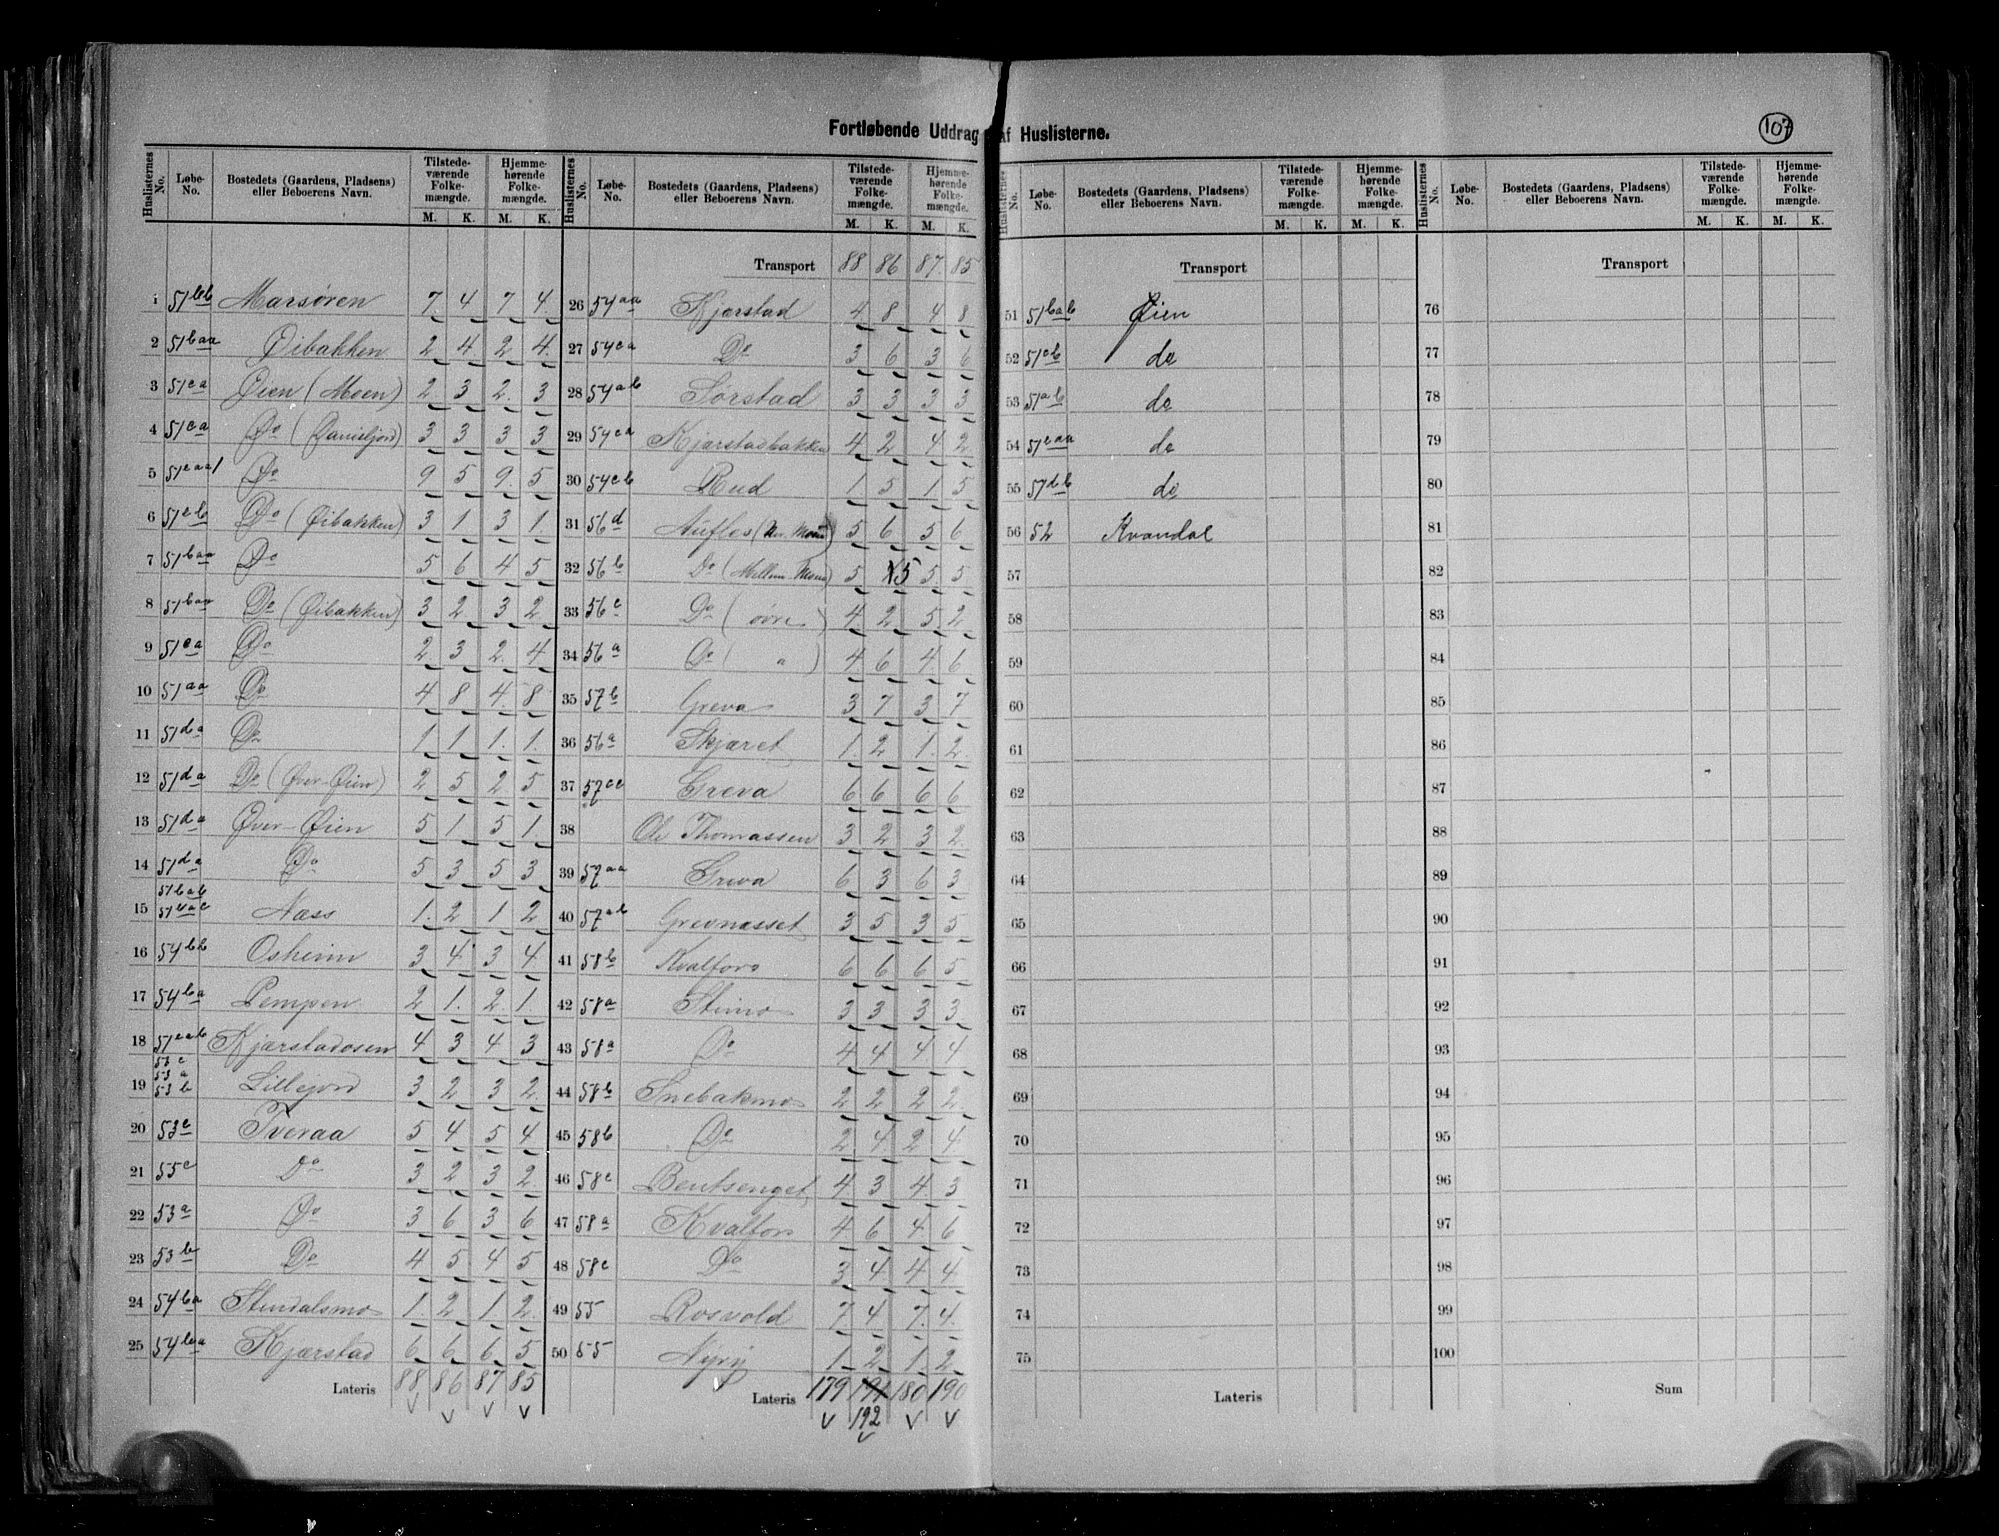 Fortløbende Uddrag af Huslisterne.
107
Huslisternes No. | Løbe-No. | Bostedets (Gaardens, Pladsens) eller Beboerens Navn. | Tilstedeværende Folkemængde. M. K. | Hjemmehørende Folkemængde. M. K.
1 51bb Marsøren 7 4 7 4
2 51baa Øibakken 2 4 2 4
3 51ca Øien (Moen) 2 3 2 3
4 51ca Do (Danieljord) 3 3 3 3
5 51caa1 Do 9 5 9 5
6 51cb Do (Øibakken) 3 1 3 1
7 51baa Do 5 6 4 5
8 51baa Do (Øibakken) 3 2 3 2
9 51ca Do 2 3 2 4
10 51aa Do 4 8 4 8
11 51da Do 1 1 1 1
12 51da Do (Øver-Øien) 2 5 2 5
13 51da Øver-Øien 5 1 5 1
14 51da Do 5 3 5 3
51bab
15 Næss 1 2 1 2
16 54bb Osheim 3 4 3 4
17 54ba Lempen 2 1 2 1
18 51cab Kjærstadosen 4 3 4 3
53c
53a
19 53b Lillejord 3 2 3 2
20 53c Tveraa 5 4 5 4
21 55c Do 3 2 3 2
22 53a Do 3 6 3 6
23 53b Do 4 5 4 5
24 54ba Stendalsmo 1 2 1 2
25 54ba Kjærstad 6 6 6 5
Lateris 88 86 87 85
Huslisternes No. | Løbe-No. | Bostedets (Gaardens, Pladsens) eller Beboerens Navn. | Tilstedeværende Folkemængde. M. K. | Hjemmehørende Folkemængde. M. K.
Transport 88 86 87 85
26 54aa Kjærstad 4 8 4 8
27 54ca Do 3 6 3 6
28 54ab Sørstad 3 3 3 3
29 54ca Kjærstadbakken 4 2 4 2
30 54cb Rud 1 5 1 5
31 56d Aufles 5 6 5 6
32 56b Do (Mellem Moen) 5 5 5 5
33 56c Do (øvre) 4 2 5 2
34 56a Do ( " ) 4 6 4 6
35 57b Greva 3 7 3 7
36 56a Skjæret 1 2 1 2
37 57cc Greva 6 6 6 6
38 Ole Thomassen 3 2 3 2
39 57aa Greva 6 3 6 3
40 57ab Grevnæsset 3 5 3 5
41 58b Kvalfors 6 6 6 5
42 58a Stimo 3 3 3 3
43 58a Do 4 4 4 4
44 58b Snebakmo 2 2 2 2
45 58b Do 2 4 2 4
46 58c Bentsenget 4 3 4 3
47 58a Kvalfors 4 6 4 6
48 58c Do 3 4 4 4
49 55 Rosvold 7 4 7 4
50 55 Nyrij 1 2 1 2
Lateris 179 191 180 190
192
Huslisternes No. | Løbe-No. | Bostedets (Gaardens, Pladsens) eller Beboerens Navn. | Tilstedeværende Folkemængde. M. K. | Hjemmehørende Folkemængde. M. K.
Transport
51 51bab Øien
52 51cb do
53 51ab do
54 51caa do
55 51db do
56 52 Kvandal
57
58
59
60
61
62
63
64
65
66
67
68
69
70
71
72
73
74
75
Lateris
Huslisternes No. | Løbe-No. | Bostedets (Gaardens, Pladsens) eller Beboerens Navn. | Tilstedeværende Folkemængde. M. K. | Hjemmehørende Folkemængde. M. K.
Transport
76
77
78
79
80
81
82
83
84
85
86
87
88
89
90
91
92
93
94
95
96
97
98
99
100
Sum